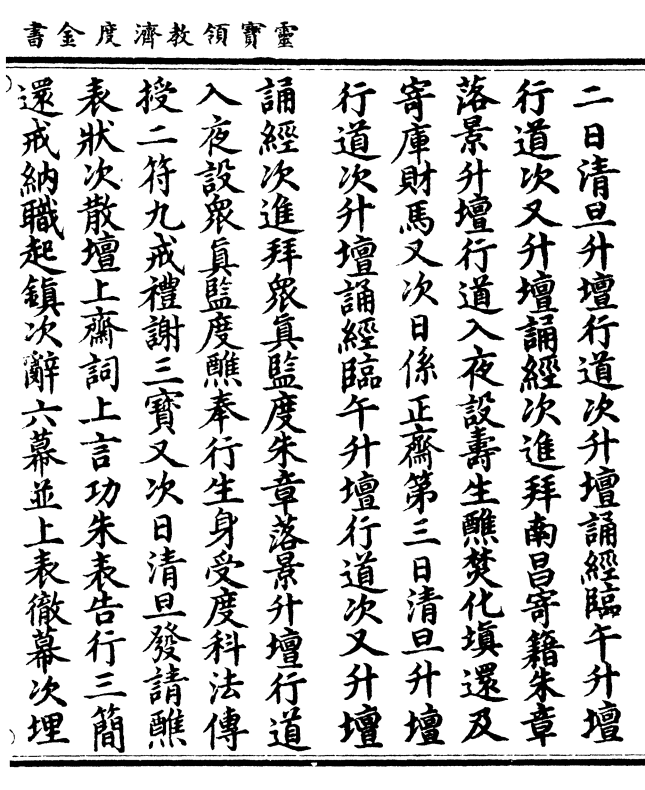 靈寶領教濟度金書
二日清旦升壇行道次升壇誦經臨午升壇
行道次又升壇誦經次進拜南昌寄籍朱章
落景升壇行道入夜設壽生醮焚化填還及
寄庫財馬又次日係正齋第三日清旦升壇
行道次升壇誦經臨午升壇行道次又升壇
誦經次進拜眾真監度朱章落景升壇行道
入夜設眾真監度醮奉行生身受度科法傳
授二符九戒禮謝三寶又次日清旦發請醮
表狀次散壇上齋詞上言功朱表告行三簡
還戒納職起鎮次辭六幕並上表徹幕次埋